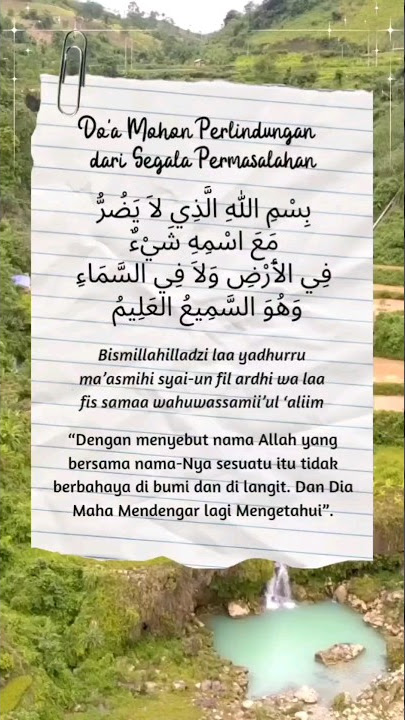 Do'a Mohon Perlindungan
dari Segala Permasalahan
بِسْمِ اللهِ الَّذِي لاَ يَضُرُّ
مَعَ اسْمِهِ شَيْءٌ
فِي الأَرْضِ وَلاَ فِي السَّمَاءِ
وَهُوَ السَّمِيعُ العَلِيمُ
Bismillahilladzi laa yadhurru
ma'asmihi syai-un fil ardhi wa laa
fis samaa wahuwassamii'ul 'aliim
“Dengan menyebut nama Allah yang
bersama nama-Nya sesuatu itu tidak
berbahaya di bumi dan di langit. Dan Dia
Maha Mendengar lagi Mengetahui”.